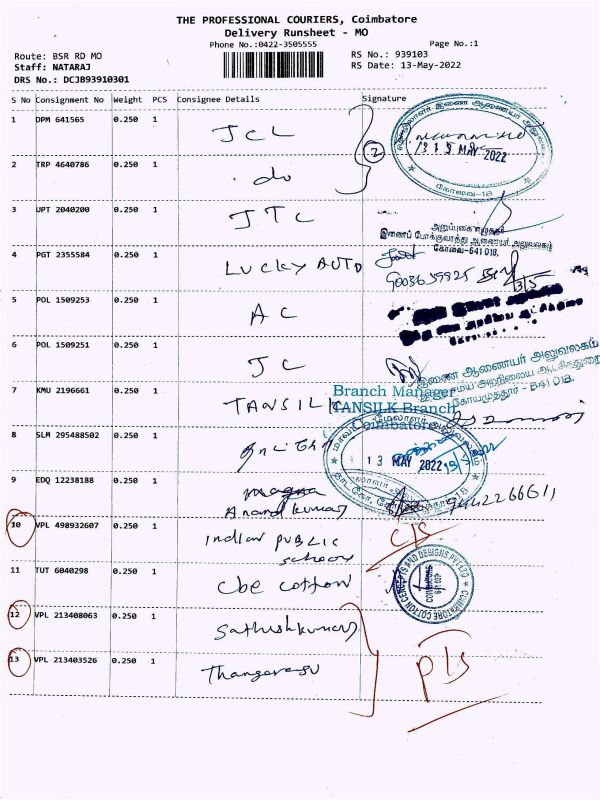 THE PROFESSIONAL COURIERS, Coimbatore
Delivery Runsheet - MO
Phone No.:0422-3505555
Page No.:1
Route: BSR RD MO
RS No.: 939103
Staff: NATARAJ
RS Date: 13-May-2022
DRS No.: DCJB93910301
S No Consignment No Weight PCS Consignee Details Signature
1 DPM 641565 0.250 1 JCL
2
13 MAY 2022
கோவை-18
2 TRP 4640786 0.250 1 do
3 UPT 2040200 0.250 1 JTC
அறுப்புகை எழுத்தர்
இணைப் போக்குவரத்து ஆணையர் அலுவலகம்
கோவை-641 018.
4 PGT 2355584 0.250 1 LUCKY AUTO
13/5
5 POL 1509253 0.250 1 AC
6 POL 1509251 0.250 1 JC
இணை ஆணையர் அலுவலகம்
கோயமுத்தூர் - 641 018.
7 KMU 2196661 0.250 1 TANSILK
Branch Manager
TANSILK Branch
Coimbatore
8 SLM 295488502 0.250 1
13 MAY 2022
9 EDQ 12238188 0.250 1 Magna
Anand kumar
10 VPL 498932607 0.250 1 Indian Public
School
C/S
11 TUT 6040298 0.250 1 Cbe cotton
COIMBATORE COTTON CONCEPTS AND DESIGNS PVT LTD
COIMBATORE
12 VPL 213408063 0.250 1 Sathishkumar
13 VPL 213403526 0.250 1 Thangarasu
P/S